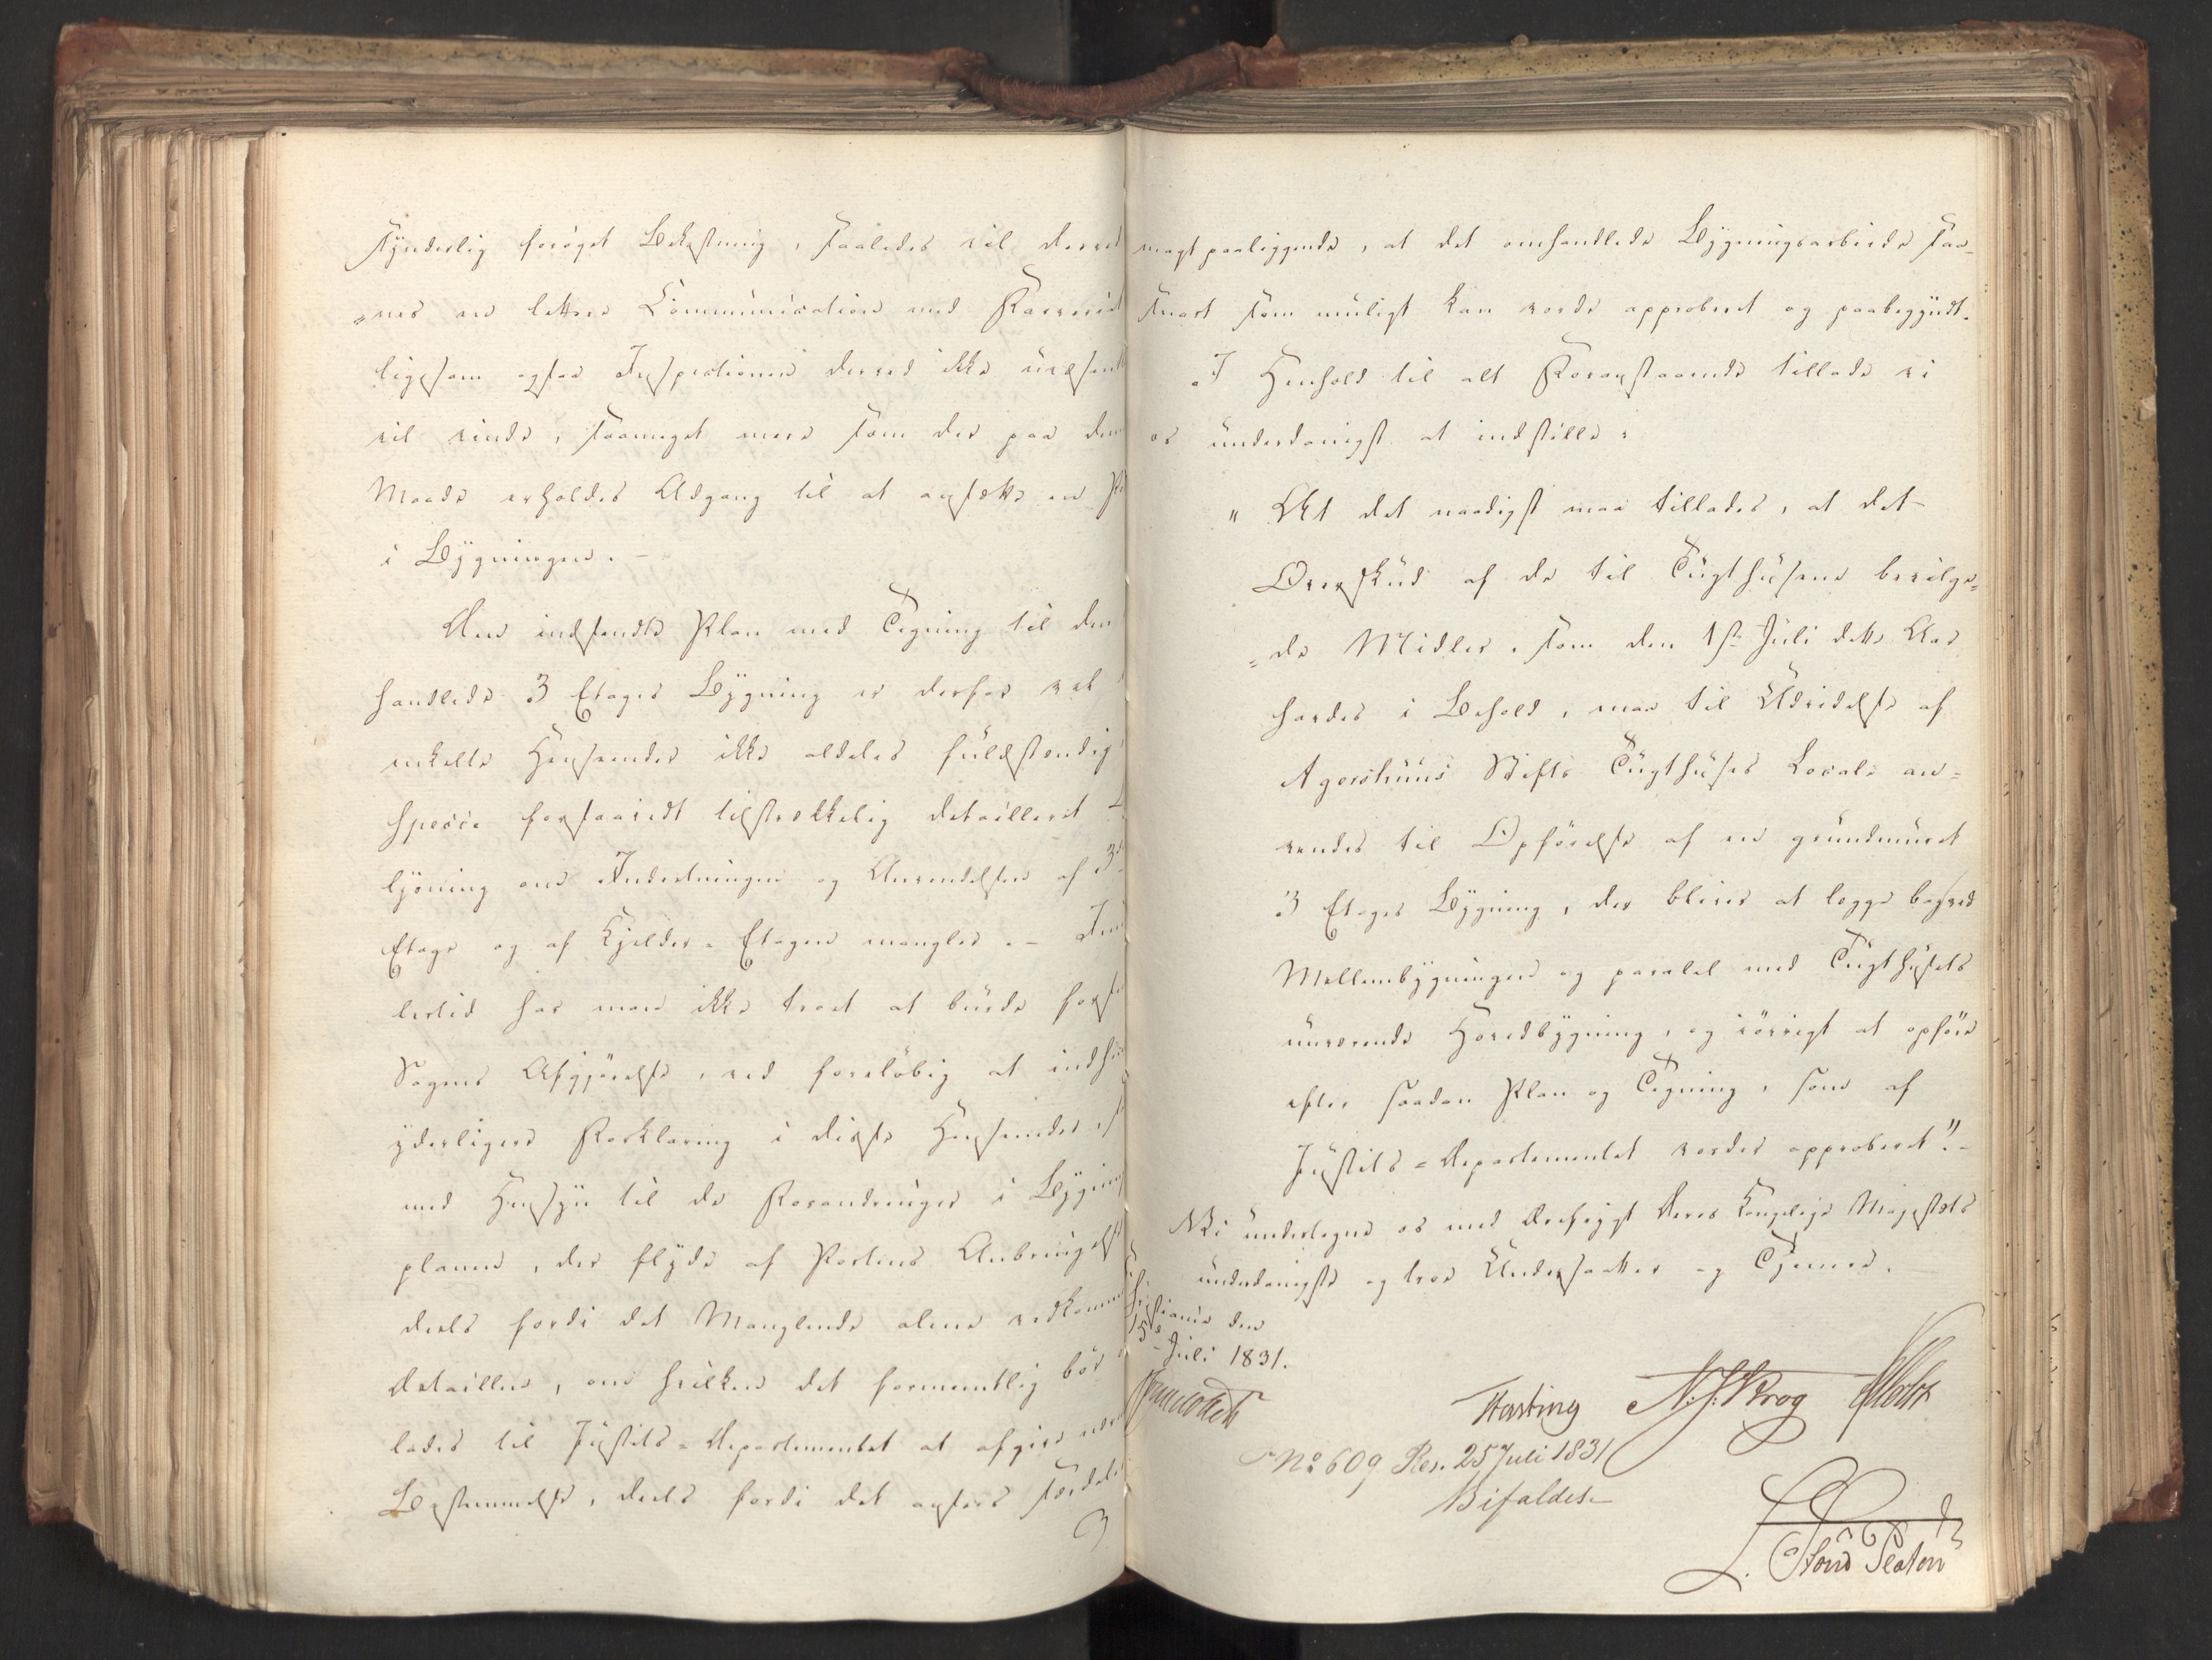 synderlig forøget Bekostning, saaledes vil derved
„nes en lettere Communication med Farveriet
ligesom ogsaa Inspectionen derved ikke uvæsent
vil vinde, saameget mere som der paa den
Maade erholdes Adgang til at ansætte en
i Bygningen. –
Den indsendte Plan med Tegning til den
handlede 3 Etages Bygning er derfor vel
enkelte Henseender ikke aldeles fuldstændig
specie forsaavidt tilstrækkelig detailleret
lysning om Indretningen og Anvendelsen af 3d
Etage og af Kjelder-Etagen mangler. – Imid
lertid har man ikke troet at burde
Sagens Afgjørelse, ved foreløbig at indh
yderligere Forklaring i disse Henseender
med Hensyn til de Forandringer i Bygnin
planen, der flyde af Portens Anbringelse
deels fordi det Manglende alene vedkomm
Detaillen, om hvilken det formeentlig bør
lades til Justits-Departementet at afgive
Bestemmelse, deels fordi det ansees særdeles
magtpaaliggende, at det omhandlede Bygningsarbeide saa
snart som muligt kan vorde approberet og paabegyndt.
I Henhold til alt Foranstaaende tillade vi
os underdanigst at indstille:
„ At det naadigst maa tillades, at det
Overskud af de til Tugthusene bevilge-
-de Midler, som den 1ste Juli dette Aar
havdes i Behold, maa til Udvidelse af
Agershuus Stifts Tugthuses Locale an-
vendes til Opførelse af en grundmuret
3 Etages Bygning, der bliver at lægge bagved
Mellembygningen og paralel med Tugthusets
nuværende Hovedbygning, og iøvrigt at opføre
efter saadan Plan og Tegning, som af
Justits-Departementet vorder approberet". –
Vi undertegne os med Ærefrygt Deres Kongelige Majestæts
underdanigste og troe Undersaatter og Tjenere.
Christiania den
15de Juli 1831.
Hasting N. J. Krog
No 609 Res. 25 Juli 1831
Bifaldes
Platen